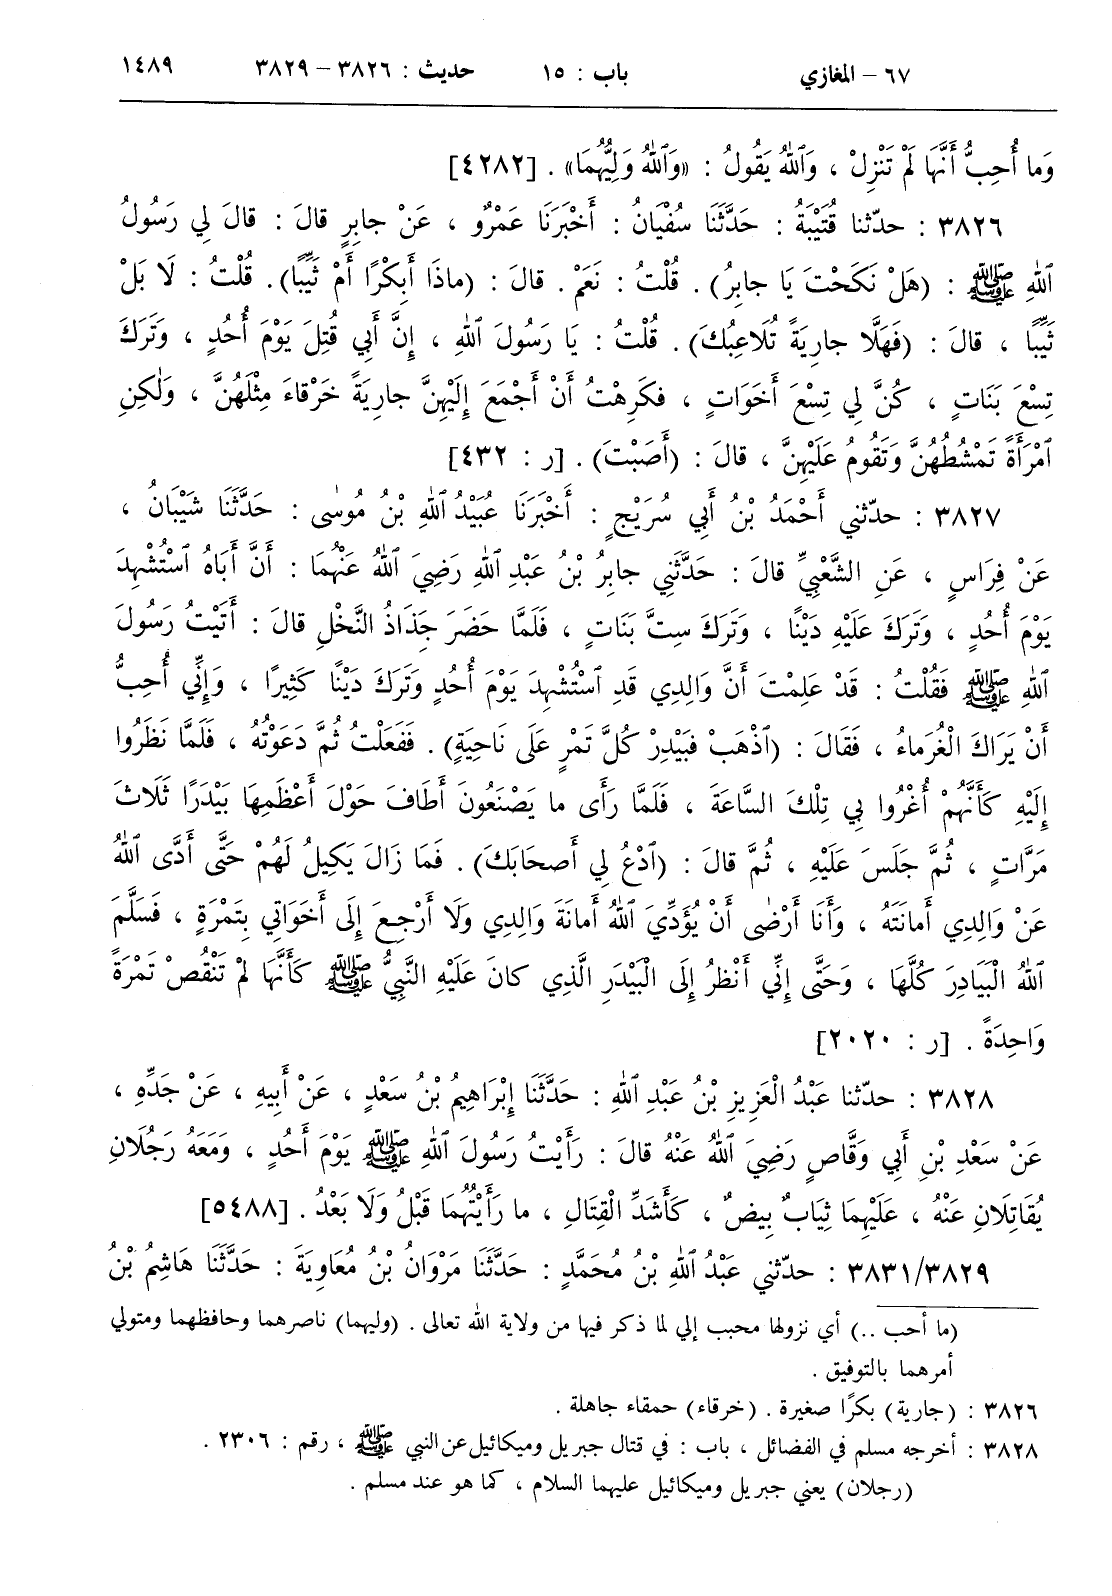 ٦٧ – المغازي باب : ١٥ حديث : ٣٨٢٦ – ٣٨٢٩ ١٤٨٩
وَما أُحِبُّ أَنَّهَا لَمْ تَنْزِلْ ، وَٱللهُ يَقُولُ : «وَٱللهُ وَلِيُّهُمَا» . [٤٢٨٢]
٣٨٢٦ : حدّثنا قُتَيْبَةُ : حَدَّثَنَا سُفْيَانُ : أَخْبَرَنَا عَمْرٌو ، عَنْ جابِرٍ قالَ : قالَ لِي رَسُولُ
ٱللهِ ﷺ : (هَلْ نَكَحْتَ يَا جابِرُ) . قُلْتُ : نَعَمْ . قالَ : (ماذَا أَبِكْرًا أَمْ ثَيِّبًا) . قُلْتُ : لَا بَلْ
ثَيِّبًا ، قالَ : (فَهَلَّا جارِيَةً تُلَاعِبُكَ) . قُلْتُ : يَا رَسُولَ ٱللهِ ، إِنَّ أَبِي قُتِلَ يَوْمَ أُحُدٍ ، وَتَرَكَ
تِسْعَ بَنَاتٍ ، كُنَّ لِي تِسْعَ أَخَوَاتٍ ، فَكَرِهْتُ أَنْ أَجْمَعَ إِلَيْهِنَّ جارِيَةً خَرْقاءَ مِثْلَهُنَّ ، وَلٰكِنِ
ٱمْرَأَةً تَمْشُطُهُنَّ وَتَقُومُ عَلَيْهِنَّ ، قالَ : (أَصَبْتَ) . [ر : ٤٣٢]
٣٨٢٧ : حدّثني أَحْمَدُ بْنُ أَبِي سُرَيْجٍ : أَخْبَرَنَا عُبَيْدُ ٱللهِ بْنُ مُوسٰى : حَدَّثَنَا شَيْبَانُ ،
عَنْ فِرَاسٍ ، عَنِ الشَّعْبِيِّ قالَ : حَدَّثَنِي جابِرُ بْنُ عَبْدِ ٱللهِ رَضِيَ ٱللهُ عَنْهُمَا : أَنَّ أَبَاهُ ٱسْتُشْهِدَ
يَوْمَ أُحُدٍ ، وَتَرَكَ عَلَيْهِ دَيْنًا ، وَتَرَكَ سِتَّ بَنَاتٍ ، فَلَمَّا حَضَرَ جِذَاذُ النَّخْلِ قالَ : أَتَيْتُ رَسُولَ
ٱللهِ ﷺ فَقُلْتُ : قَدْ عَلِمْتَ أَنَّ وَالِدِي قَدِ ٱسْتُشْهِدَ يَوْمَ أُحُدٍ وَتَرَكَ دَيْنًا كَثِيرًا ، وَإِنِّي أُحِبُّ
أَنْ يَرَاكَ الْغُرَماءُ ، فَقَالَ : (ٱذْهَبْ فَبَيْدِرْ كُلَّ تَمْرٍ عَلَى نَاحِيَةٍ) . فَفَعَلْتُ ثُمَّ دَعَوْتُهُ ، فَلَمَّا نَظَرُوا
إِلَيْهِ كَأَنَّهُمْ أُغْرُوا بِي تِلْكَ السَّاعَةَ ، فَلَمَّا رَأَى ما يَصْنَعُونَ أَطَافَ حَوْلَ أَعْظَمِهَا بَيْدَرًا ثَلَاثَ
مَرَّاتٍ ، ثُمَّ جَلَسَ عَلَيْهِ ، ثُمَّ قالَ : (ٱدْعُ لِي أَصحَابَكَ) . فَمَا زَالَ يَكِيلُ لَهُمْ حَتَّى أَدَّى ٱللهُ
عَنْ وَالِدِي أَمانَتَهُ ، وَأَنَا أَرْضٰى أَنْ يُؤَدِّيَ ٱللهُ أَمانَةَ وَالِدِي وَلَا أَرْجِعَ إِلَى أَخَوَاتِي بِتَمْرَةٍ ، فَسَلَّمَ
ٱللهُ الْبَيَادِرَ كُلَّهَا ، وَحَتَّى إِنِّي أَنْظُرُ إِلَى الْبَيْدَرِ الَّذِي كانَ عَلَيْهِ النَّبِيُّ ﷺ كَأَنَّهَا لَمْ تَنْقُصْ تَمْرَةً
وَاحِدَةً . [ر : ٢٠٢٠]
٣٨٢٨ : حدّثنا عَبْدُ الْعَزِيزِ بْنُ عَبْدِ ٱللهِ : حَدَّثَنَا إِبْرَاهِيمُ بْنُ سَعْدٍ ، عَنْ أَبِيهِ ، عَنْ جَدِّهِ ،
عَنْ سَعْدِ بْنِ أَبِي وَقَّاصٍ رَضِيَ ٱللهُ عَنْهُ قالَ : رَأَيْتُ رَسُولَ ٱللهِ ﷺ يَوْمَ أُحُدٍ ، وَمَعَهُ رَجُلَانِ
يُقَاتِلَانِ عَنْهُ ، عَلَيْهِمَا ثِيَابٌ بِيضٌ ، كَأَشَدِّ الْقِتَالِ ، ما رَأَيْتُهُمَا قَبْلُ وَلَا بَعْدُ . [٥٤٨٨]
٣٨٣١/٣٨٢٩ : حدّثني عَبْدُ ٱللهِ بْنُ مُحَمَّدٍ : حَدَّثَنَا مَرْوَانُ بْنُ مُعَاوِيَةَ : حَدَّثَنَا هَاشِمُ بْنُ
(ما أحب ..) أي نزولها محبب إلي لما ذكر فيها من ولاية الله تعالى . (وليهما) ناصرهما وحافظهما ومتولي
أمرهما بالتوفيق .
٣٨٢٦ : (جارية) بكرًا صغيرة . (خرقاء) حمقاء جاهلة .
٣٨٢٨ : أخرجه مسلم في الفضائل ، باب : في قتال جبريل وميكائيل عن النبي ﷺ ، رقم : ٢٣٠٦ .
(رجلان) يعني جبريل وميكائيل عليهما السلام ، كما هو عند مسلم .